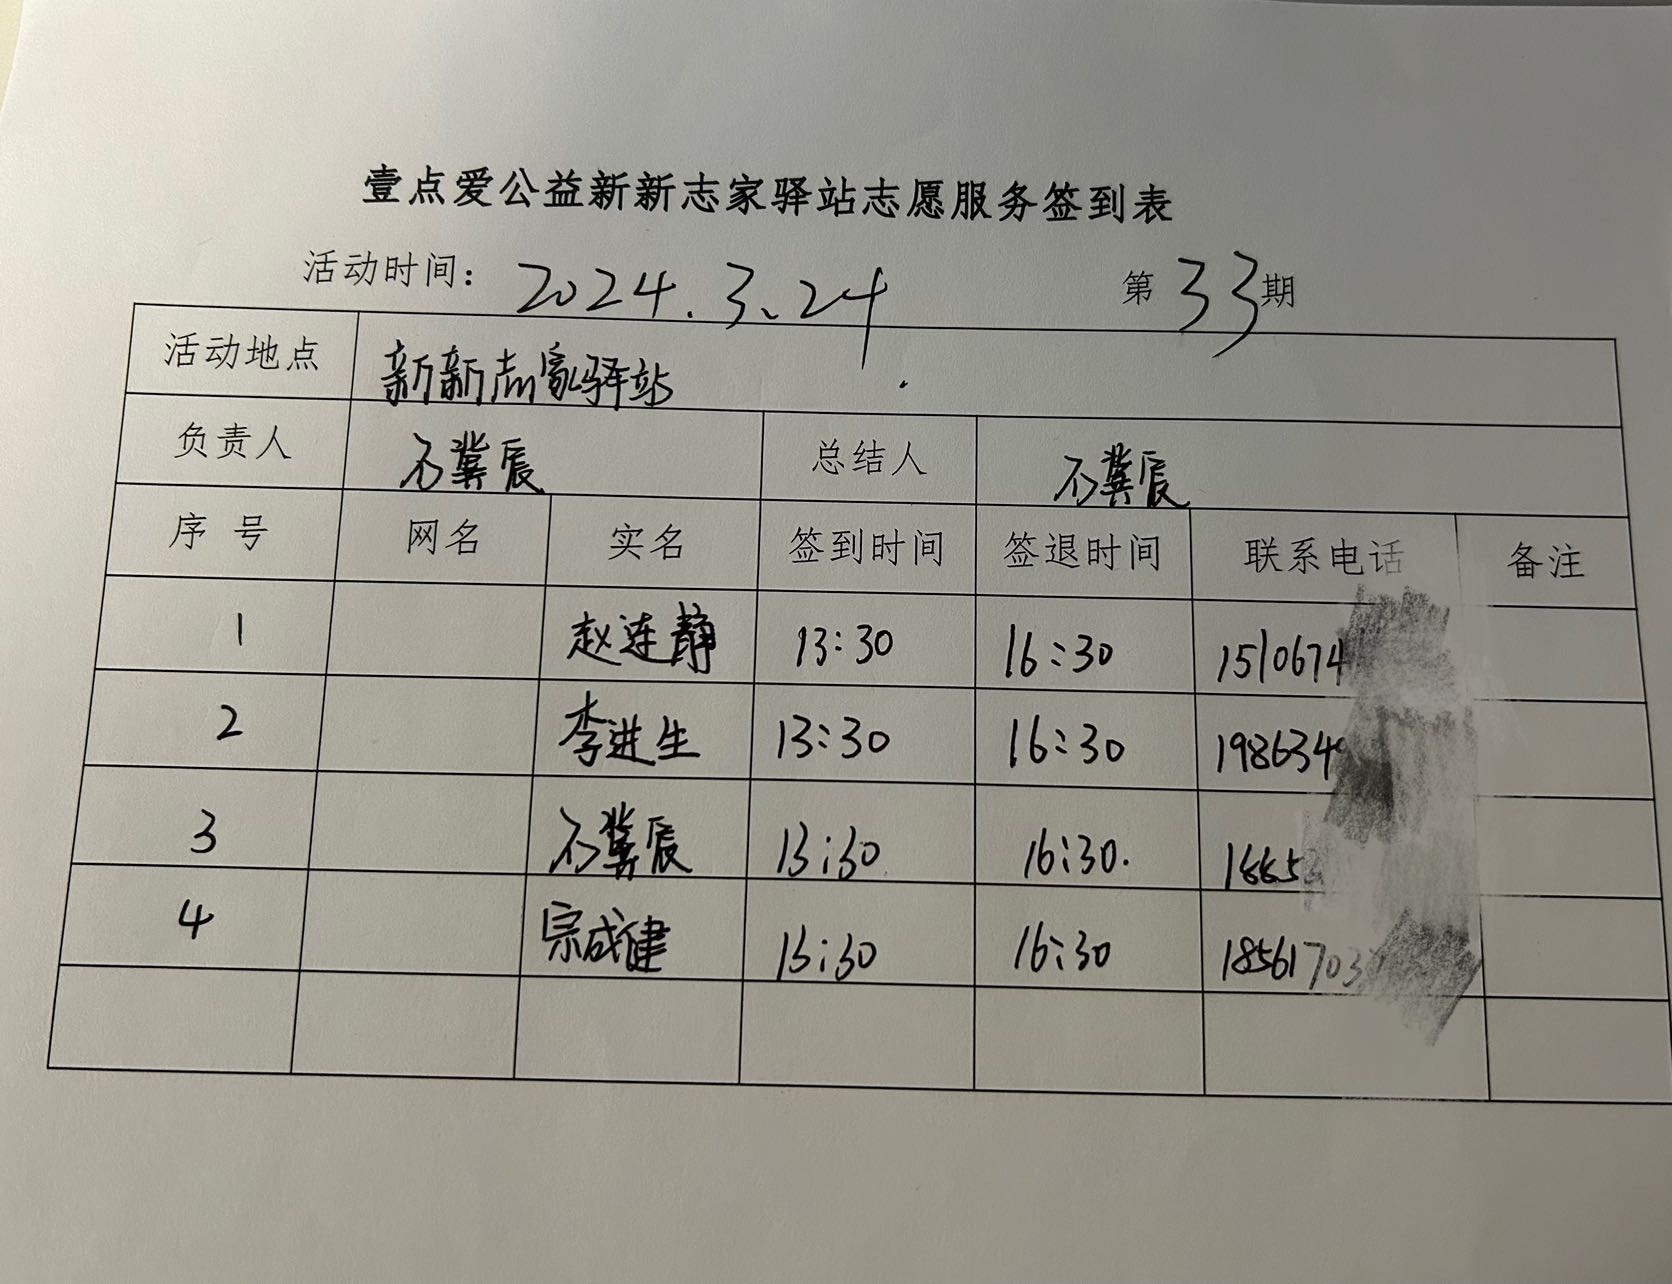 壹点爱公益新新志家驿站志愿服务签到表
活动时间: 2024.3.24 第33期
活动地点 新新志家驿站
负责人 石冀辰 总结人 石冀辰
序号 网名 实名 签到时间 签退时间 联系电话 备注
1 赵连静 13:30 16:30 1510674
2 李进生 13:30 16:30 1986349
3 石冀辰 13:30 16:30. 18852
4 宗成健 13:30 16:30 18561703